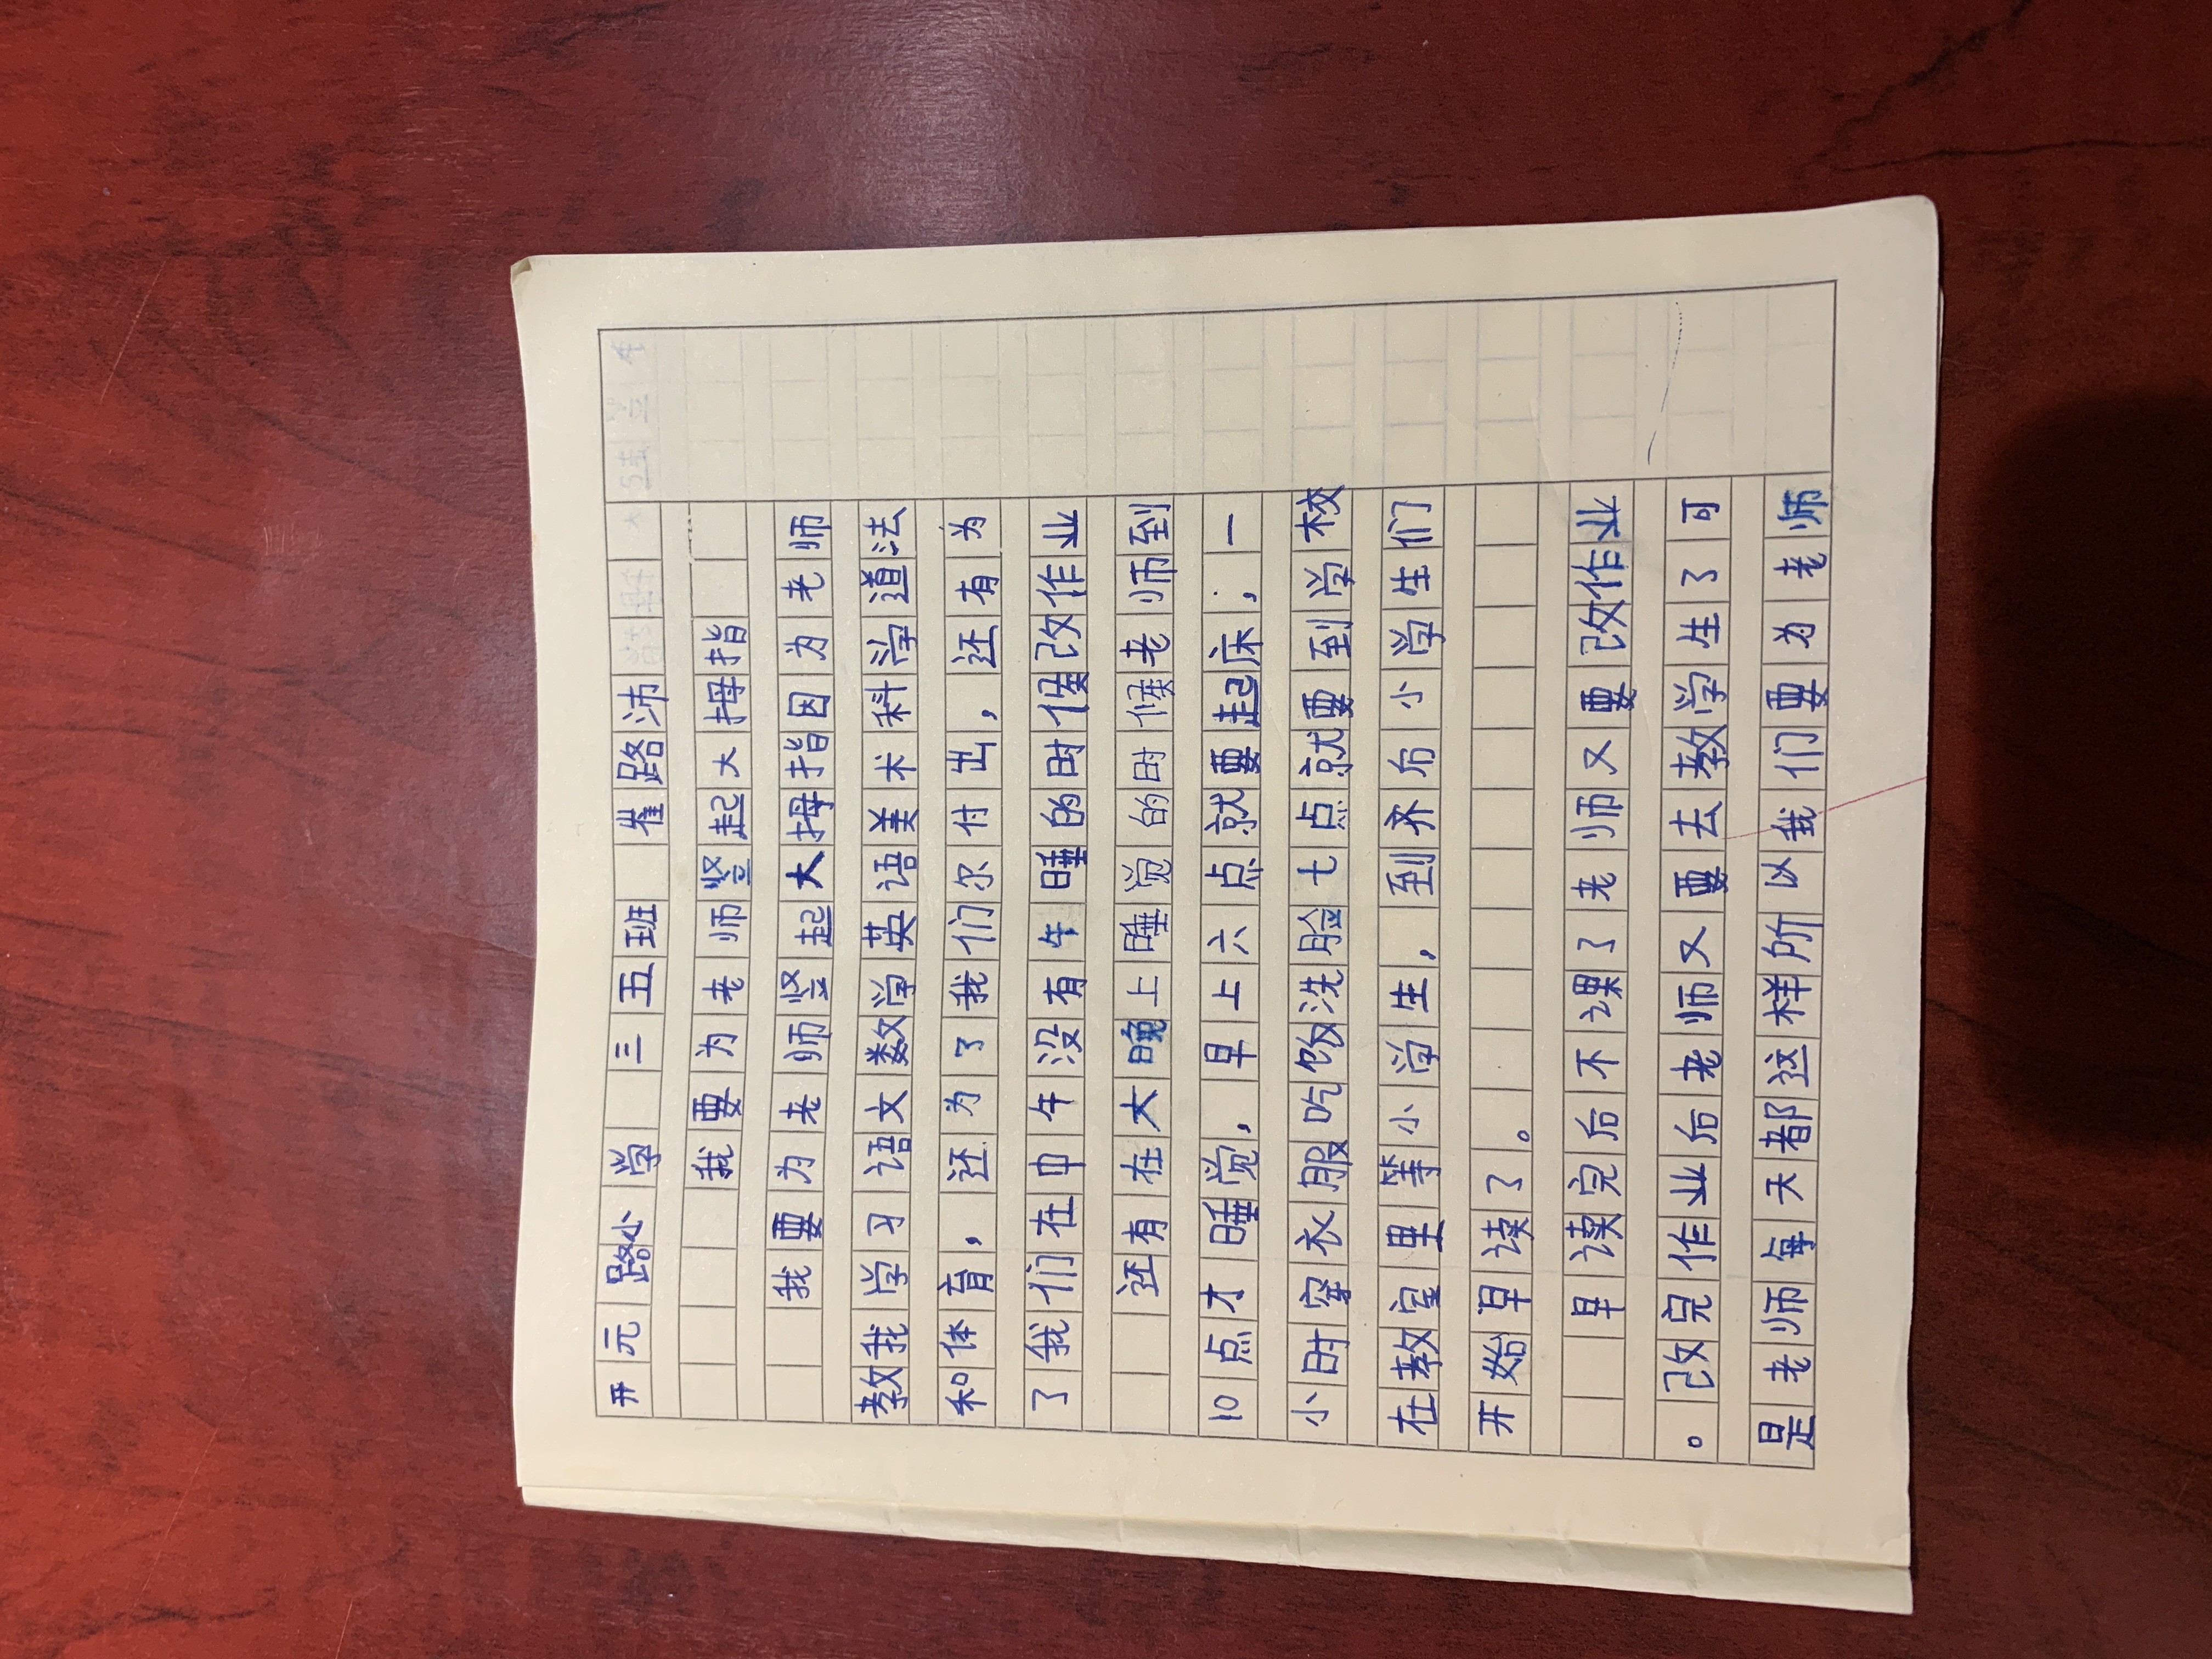 开元路小学 三五班 崔路沛
我要为老师竖起大拇指
我要为老师竖起大拇指因为老师
教我学习语文数学英语美术科学道法
和体育，还为了我们尔付出，还有为
了我们在中午没有午睡的时候改作业
还有在大晚上睡觉的时候老师到
10点才睡觉，早上六点就要起床，一
小时穿衣服吃饭洗脸七点就要到学校
在教室里等小学生，到齐后小学生们
开始早读了。
早读完后不课了老师又要改作业
。改完作业后老师又要去教学生了可
是老师每天都这样所以我们要为老师